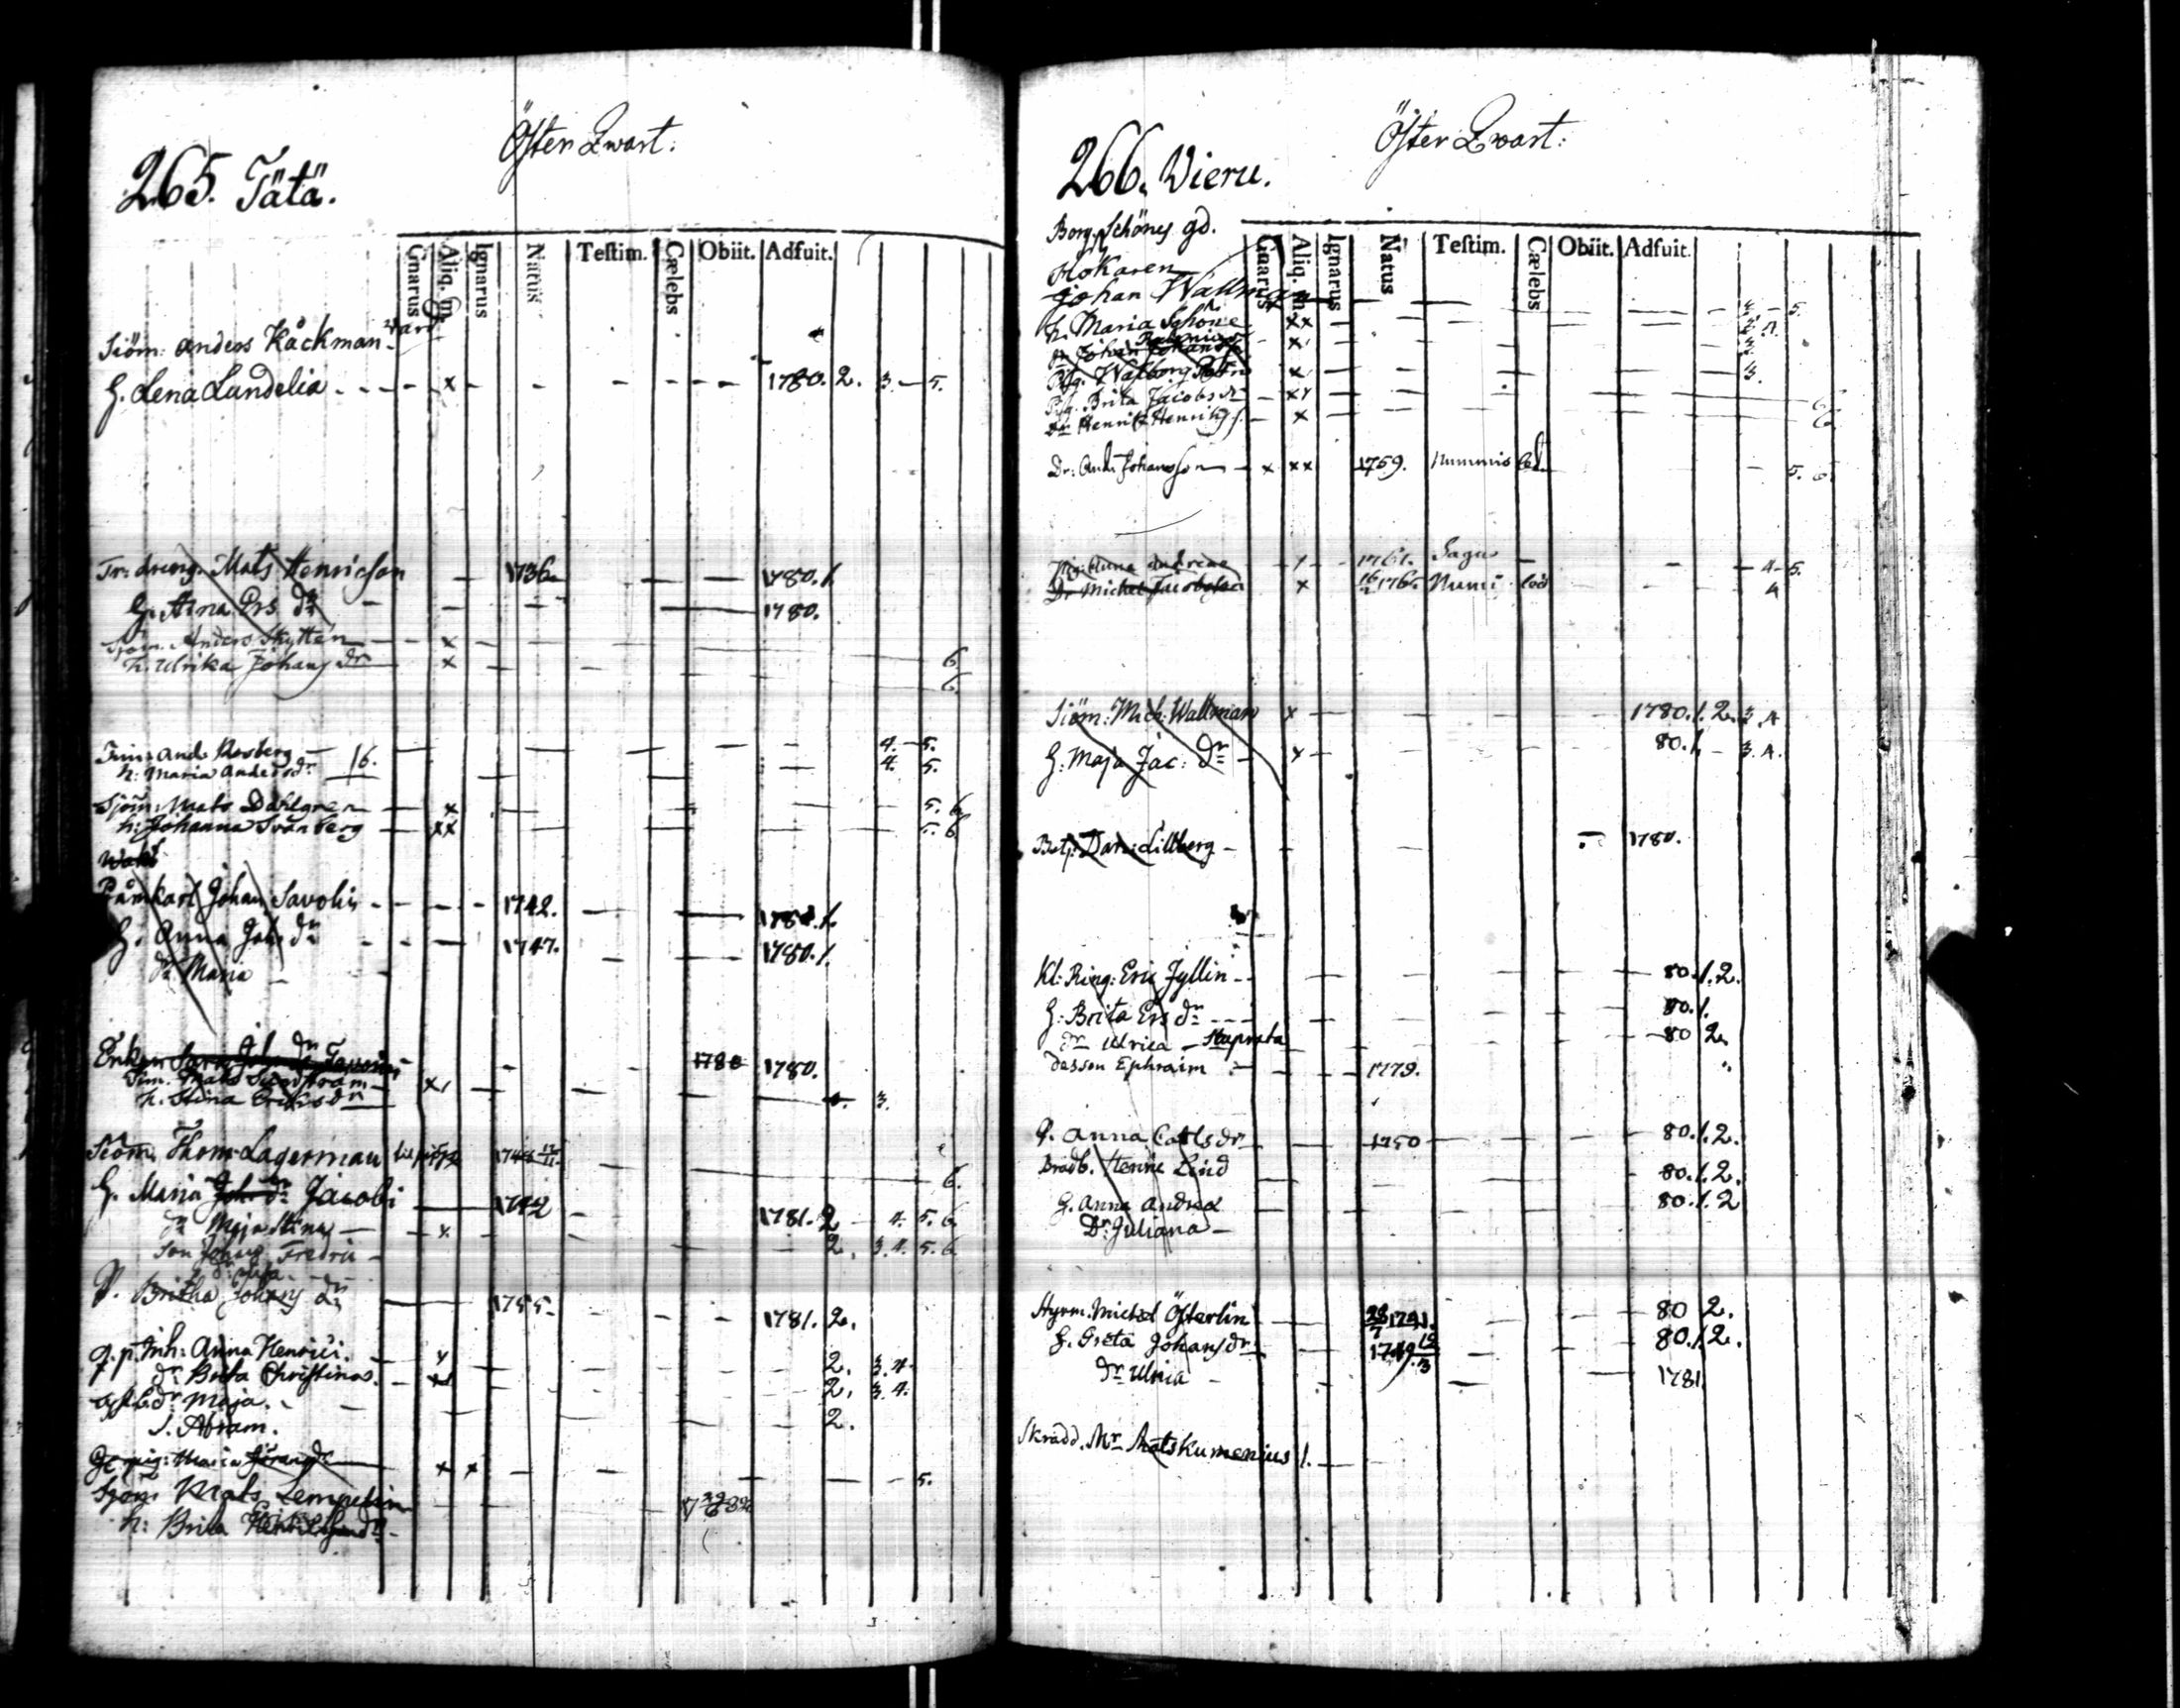 Öster Qwart:
265. Tätä.
Gnarus Aliq. m. Ignarus Natus Testim. Cælebs Obiit. Adfuit.
Siöm: Anders Råckman
H. Lena Lundelia - - - x - - - - - 1780. 2. 3 - 5.
Tr: dreng. Mats Henricson - 1736. - - - 1780. 1.
H. Anna Ers dr - - - 1780.
Sjöm. Anders Skyttén - x - - 6.
h. Ulrika Johans dr x - - 6.
And. Rosberg - 16. - - - - - 4. - 5.
h: Maria Anders dr - - - 4. 5.
Sjöm: Mats Dahlgren - x - - - 5. 6
h: Johanna Svanberg - xx - - - 5. 6
Johan Savolin - - - - 1742. - - 1780. 1.
H. Anna Joh. dr - - - 1747. - - 1780. 1.
dr Maria - -
Enkan - - 1780 1780.
Mats Sundström x - - -
h. Stina Erics dr - - - 3.
Siöm. Thom. Lagerman - - 6.
H. Maria Joh. dr Jacobi - 1742 - 1781. 2 - 4. 5. 6.
dr Maja Stina - x. - - - 2. 3. 4. 5. 6
Son Johan Fredric -
P. Britha Johans dr - 1755. - - - 1781. 2.
Inh: Anna Henrici. - x - - - 2. 3. 4.
dr Brita Christina - x - - - 2. 3. 4.
dr Maja. - - - - 2.
S. Abram.
pig: Maria x x - - - - 5.
Sjöm Mats Lempelin - -
h: Brita dr -
Öster Qwart:
266. Vieru.
Borg. Schönes gd.
Gnarus Aliq. m. Ignarus Natus Testim. Cælebs Obiit. Adfuit.
Hökaren
Johan Wallman - - - - 5.
h. Maria Schöne xx - - - -
dr Johan x - - - -
Pig. Walborg x - - - 3.
Pig. Brita Jacobs dr - xx - - - 6
Dr Henrik Henriks s. - x - - - 6
Dr: And: Johansson - x xx 1759. Nummis - 5. 6.
Anna Andreae - - 1761. Sagu - - 4 - 5.
Dr Michel Jacobsson x Numi - - 4
Siöm: Mich: Wallman x - - - - 1780. 1. 2. 3. 4
H: Maja Jac: dr - x - - - 80. 1. - 3. 4.
Dan: Lillberg - - - - 1780.
Kl: Ring: Eric Jyllin - - - - - - 80. 1. 2.
H: Brita Ers dr - - - - - - 80. 1.
dr Ulrica - - - - 80 2.
dess son Ephraim - - - 1779.
P. Anna Carls dr - - 1750 - - - 80. 1. 2.
Henric Lind - - - 80. 1. 2.
H. Anna Andreæ - - - - 80. 1. 2
Dr: Juliana -
Hyrm. Michel Österlin - - 28/7 1741. - - - 80 2.
H. Greta Johans dr - - 1749 12/3 - - - 80. 1. 2.
dr Ulrica - - - - 1781.
Skrädd. Mr Mats Kumenius 1. - -